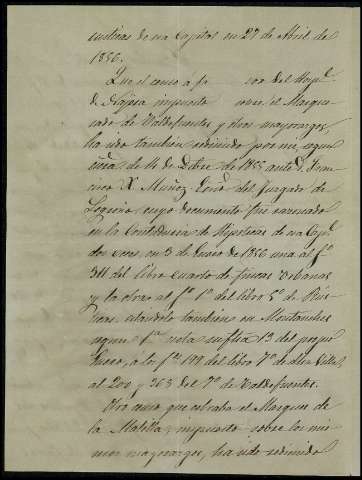 de esa Capital en 27 de Abril de
1856.
Que el censo a fa vor del Hosp.l
de impuesto sobre el Marque
sado de Valdefuentes y otros mayorazgos,
ha sido también redimido por mi, segun
de 14 de Dbre de 1855 ante D. Fran
cisco X. Muñoz, Esno del Juzgado de
Logroño cuyo documento fue
en la Contaduria de Hipotecas de esa Cap.l
dos veces, en 3 de Enero de 1856 una al fº
311 del libro cuarto de fincas Urbanas
y la otra al fº 1º del libro 5º de Rús
ticas. estandolo tambien en Montanchez
segun nota su fha 13 del propio
Enero, a los fos 199 del libro 7º de
al 200 y 363 del 7º de Valdefuentes.
Otro censo que cobraba el Marques de
de la Matilla, impuesto sobre los mis
mos mayorazgos, ha sido redimido